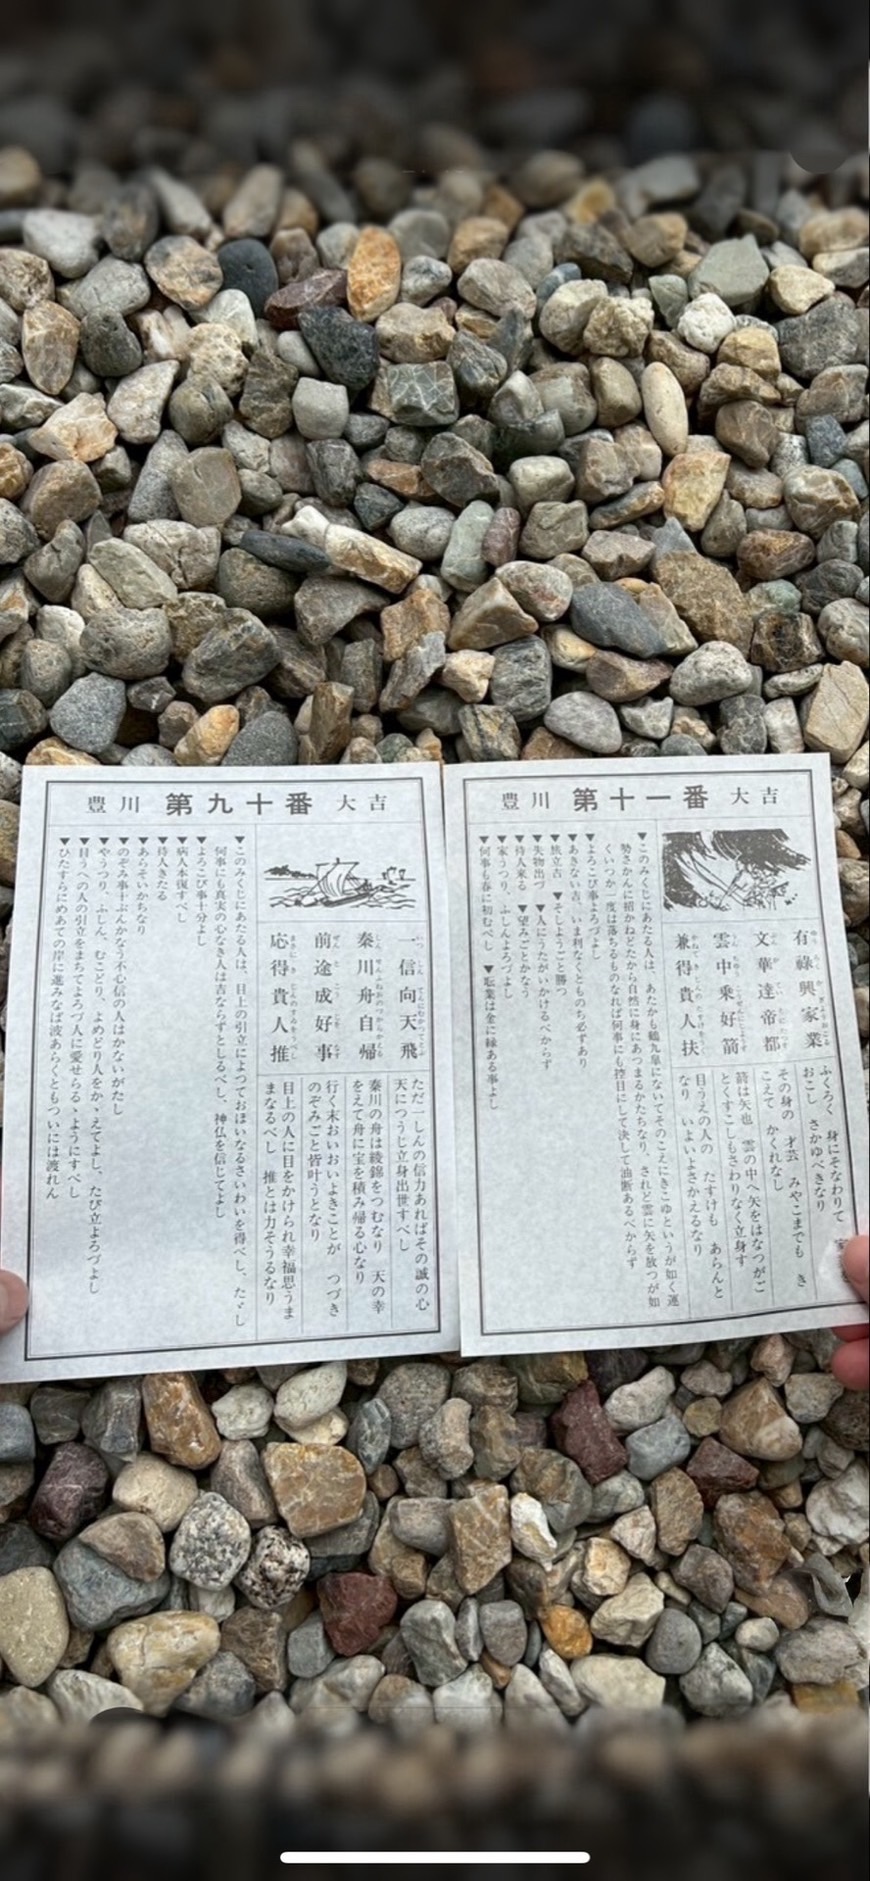 豊川 第九十番 大吉
一信向天飛
秦川舟自帰
前途成好事
応得貴人推
ただ一しんの信力あればその誠の心
天につうじ立身出世すべし
秦川の舟は綾錦をつむなり 天の幸
をえて舟に宝を積み帰る心なり
行く末おいおいよきことが つづき
のぞみごと皆叶うとなり
目上の人に目をかけられ幸福思うま
まなるべし 推とは力そうるなり
▼このみくじにあたる人は、目上の引立によつておほいなるさいわいを得べし、たゞし
何事にも真実の心なき人は吉ならずとしるべし、神仏を信じてよし
▼よろこび事十分よし
▼病人本復すべし
▼待人きたる
▼あらそいかちなり
▼のぞみ事十ぶんかなう不心信の人はかないがたし
▼やうつり、ふしん、むことり、よめどり人をかゝえてよし、たび立よろづよし
▼目うへの人の引立をまちてよろづ人に愛せらるゝようにすべし
▼ひたすらにめあての岸に進みなば波あらくともついには渡れん
豊川 第十一番 大吉
有祿興家業
文華達帝都
雲中乗好箭
兼得貴人扶
ふくろく 身にそなわりて 家
おこし さかゆべきなり
その身の 才芸 みやこまでも き
こえて かくれなし
箭は矢也 雲の中へ矢をはなつがご
とくすこしもさわりなく立身す
目うえの人の たすけも あらんと
なり いよいよさかえるなり
▼このみくじにあたる人は、あたかも鶴九皐にないてそのこえにきこゆというが如く運
勢さかんに招かねどたから自然に身にあつまるかたちなり、されど雲に矢を放つが如
くいつか一度は落ちるものなれば何事にも控目にして決して油断あるべからず
▼よろこび事よろづよし
▼あきない吉、いま利なくとものち必ずあり
▼旅立吉 ▼そしようごと勝つ
▼失物出づ ▼人にうたがいかけるべからず
▼待人来る ▼望みごとかなう
▼家うつり、ふしんよろづよし
▼何事も春に初むべし ▼職業は金に縁ある事よし